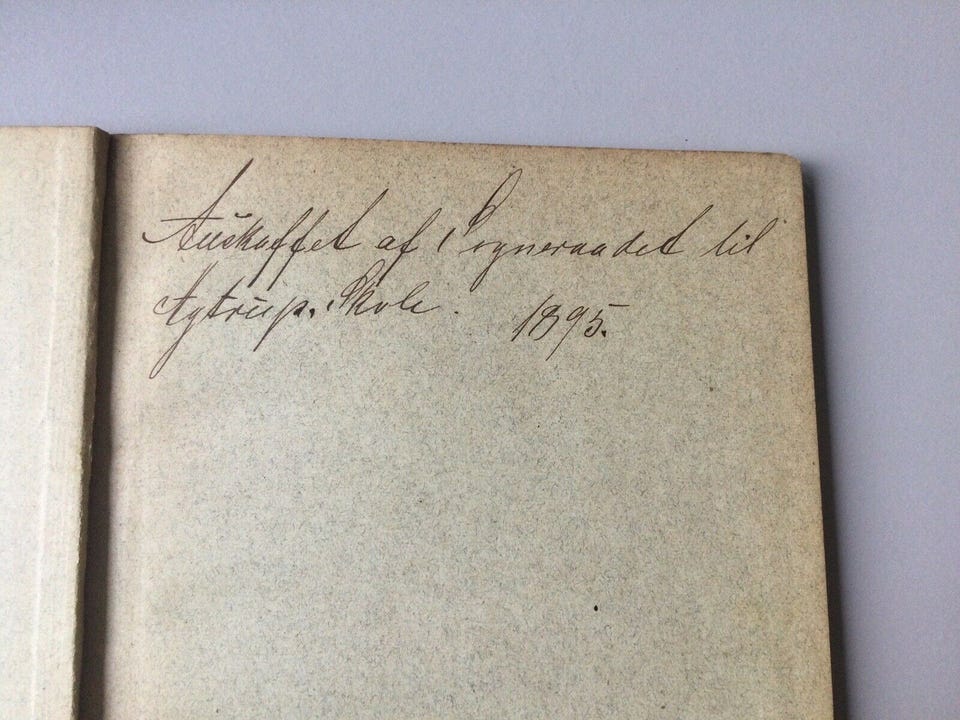 Anskaffet af Sogneraadet til
Skole. 1895.